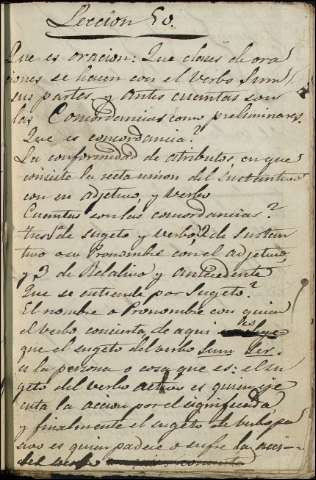 Leccion 50.
Que es oracion: Que clases de ora
ciones se hacen con el Verbo Sum
sus partes, y antes cuentas son
las Concordancias como preliminares.
Que es concordancia?
La conformidad de atributos, en que
consiste la recta union del sustantivo
con su adjetivo, y verbo
Cuantas son las concordancias?
tres 1ª de sugeto y verbo, 2ª de sustan
tivo o su Pronombre con el adjetivo,
y 3 de Relativo y antecedente
Que se entiende por sugeto?
El nombre o Pronombre con quien
el verbo concierta, de aqui
que el sugeto del verbo Sum Ser.
es la persona o cosa que es: el su
geto del verbo activo es quien eje
cuta la accion por el significada,
y finalmente el sugeto de verbo pa
sivo es quien padece o sufre la accion
del verbo